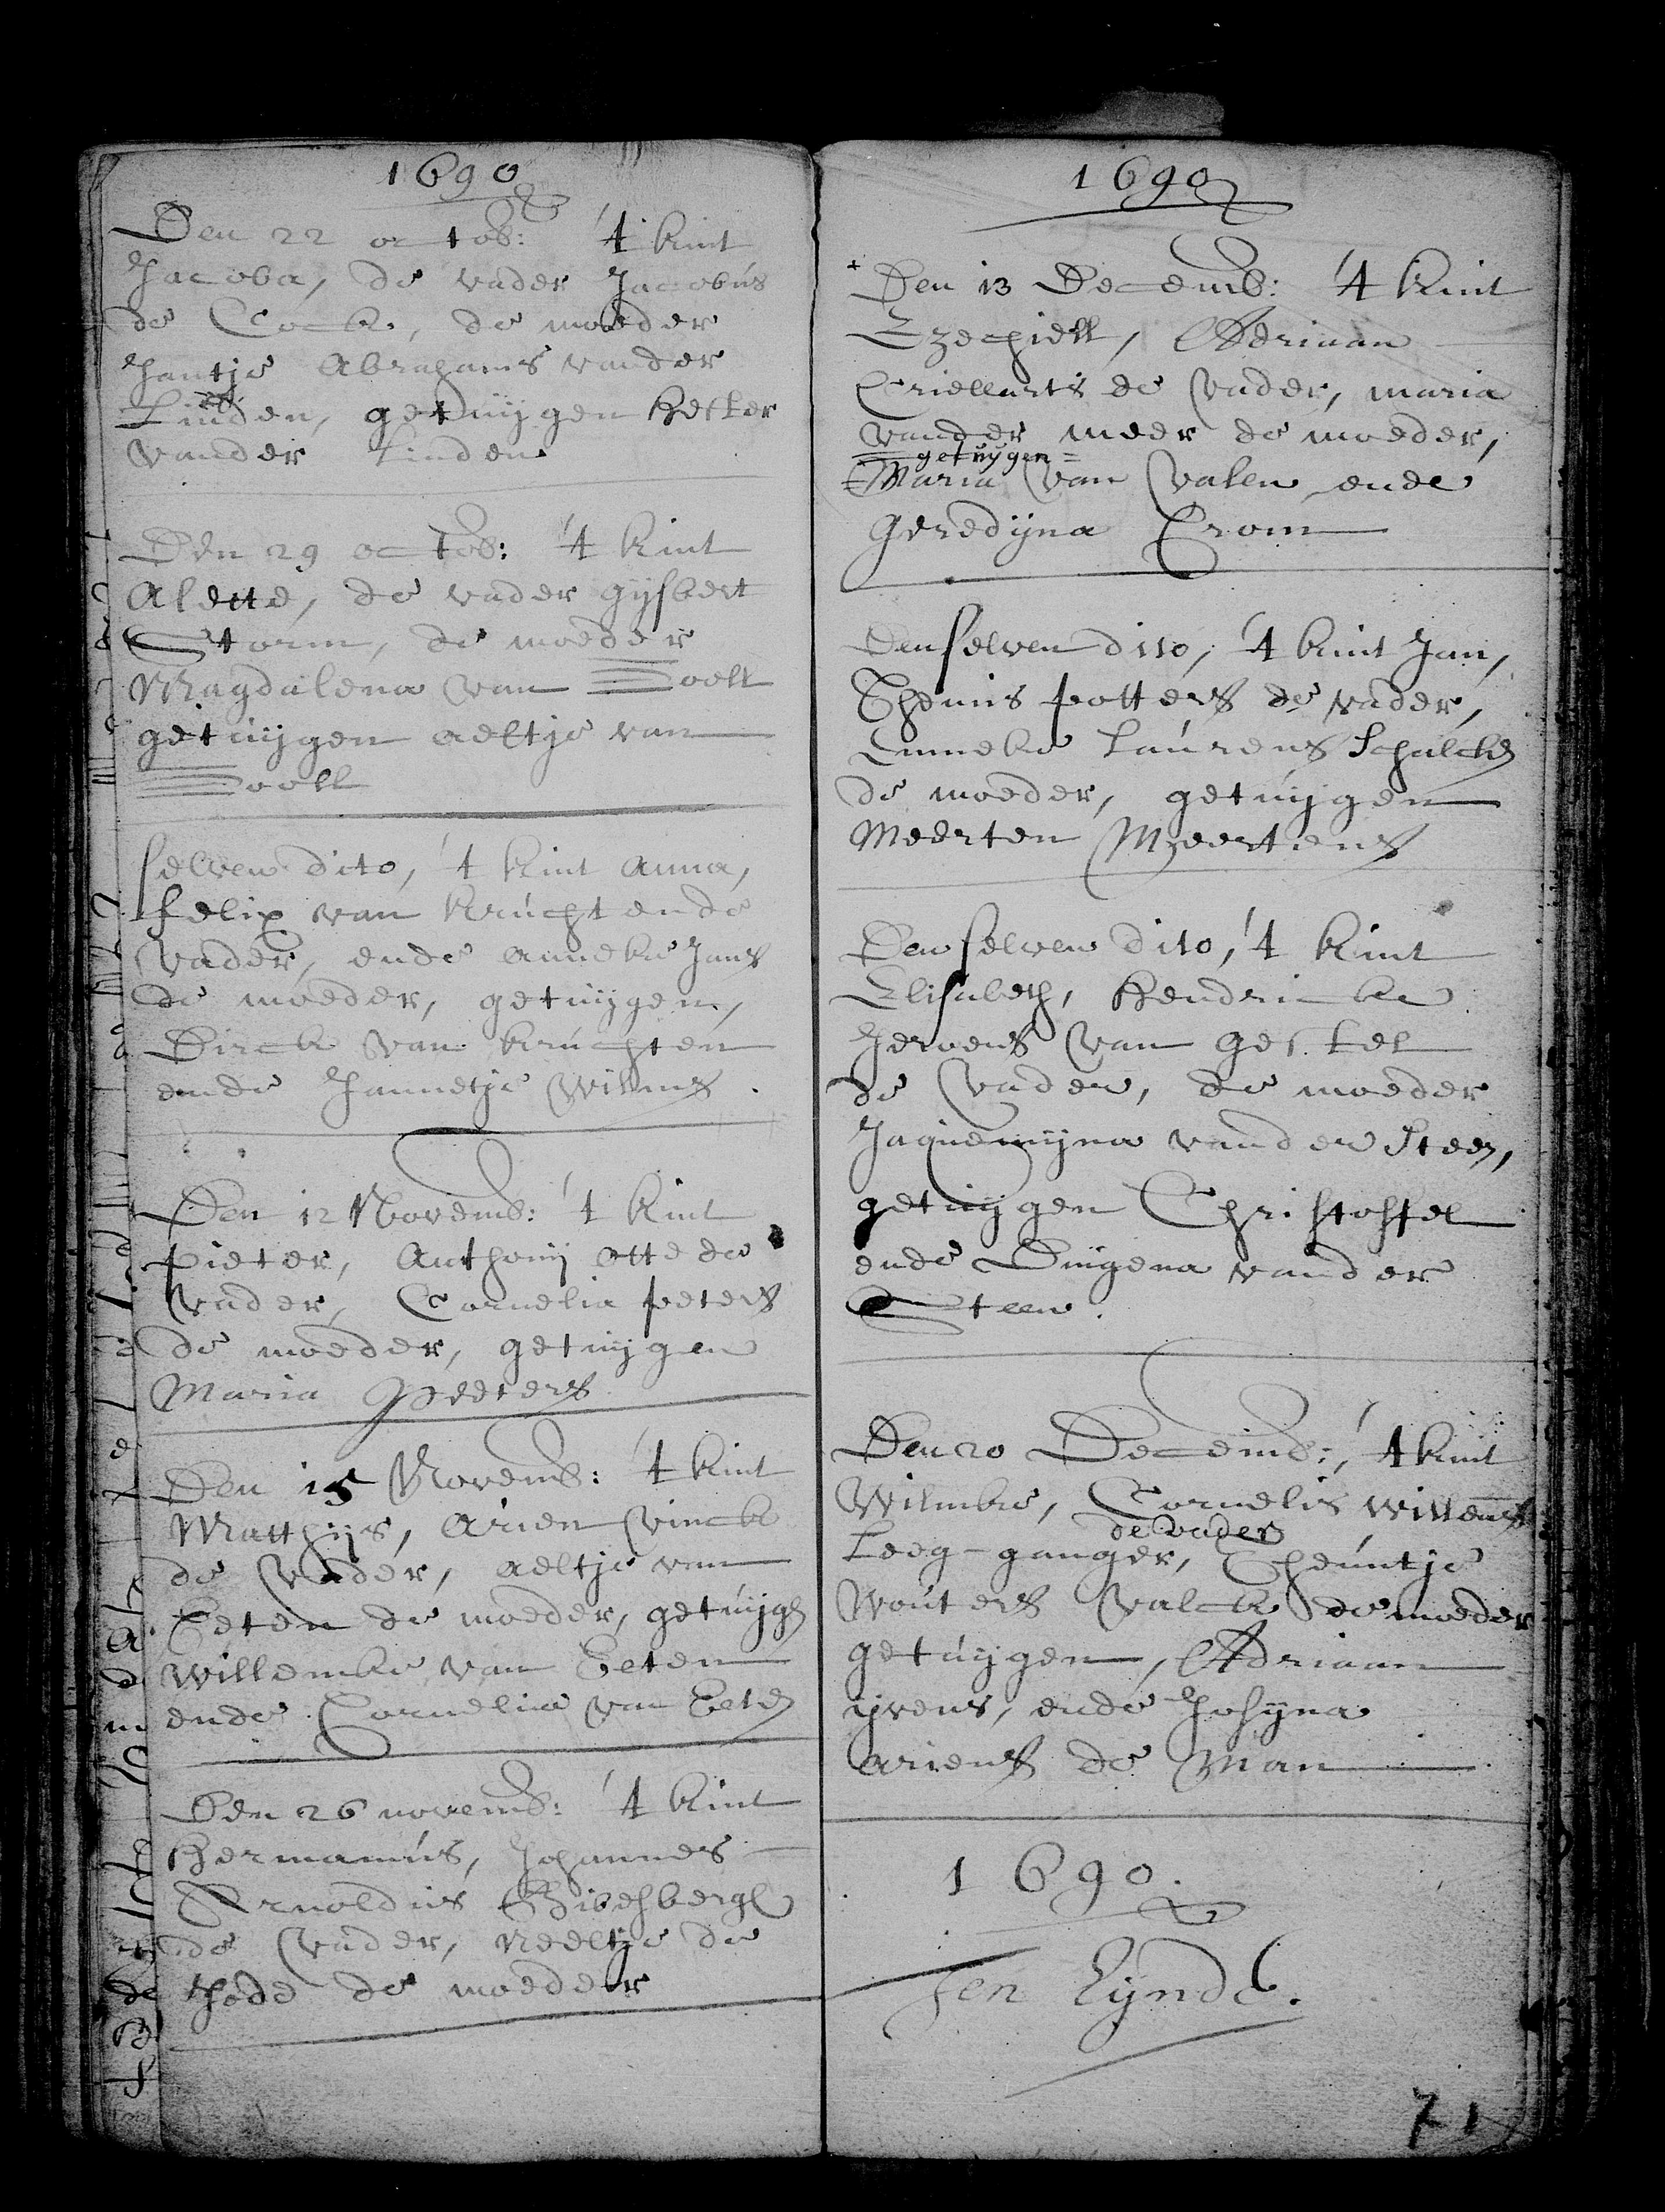 1690
Den 22 octob: 't kint
Jacoba, de vader Jacobus
de Cock, de moeder
Jantje Abrahams vander
Linden, getuijgen Hester
vander Linden
Den 29 octob: 't kint
Alette, de vader gijsbert
Storm, de moeder
Magdalena van Soelt
getuijgen aeltje van
Soelt
selven dito, 't kint anna,
felix van kruchten de
vader, ende anneke Jans
de moeder, getuijgen,
Dirck van kruchten
ende Jannetje Wilms.
Den 12 Novemb: 't kint
Pieter, Anthonij otte de
vader, Cornelia peters
de moeder, getuijgen
Maria Peeters
Den 15 Novemb: 't kint
Matthijs, Arien Vinck
de vader, aeltje van
Eeten de moeder, getuijgen
Willemke van Eeten
ende Cornelia van Eeten
Den 26 novemb: 't kint
Hermanus, Johannes
Arnoldus
de vader, Neeltje de
de moeder
1690
Den 13 Decemb: 't kint
Ezechiell, Adriaan
Criellarts de vader, maria
vander meer de moeder,
getuijgen
Maria van Valen ende
Geredijna Crom
Den selven dito, 't kint Jan,
Theunis potters de vader,
Enneke Laurens Schalcken
de moeder, getuijgen
Meerten Meertens
Den selven dito, 't kint
Elisabeth, Hendrick
Jeroens van Gestel
de vader, de moeder
Jaquemijna vander Steen,
getuijgen Christoffel
ende Dingena vander
Steen.
Den 20 Decemb:, 't kint
Wilmke, Cornelis Willems
de vader
Leeg-ganger, Theuntje
Wouters Valck de moeder
getuijgen, Adriaan
ijvens, ende Josijna
ariens de Man
1690.
Ten Eynde.
71